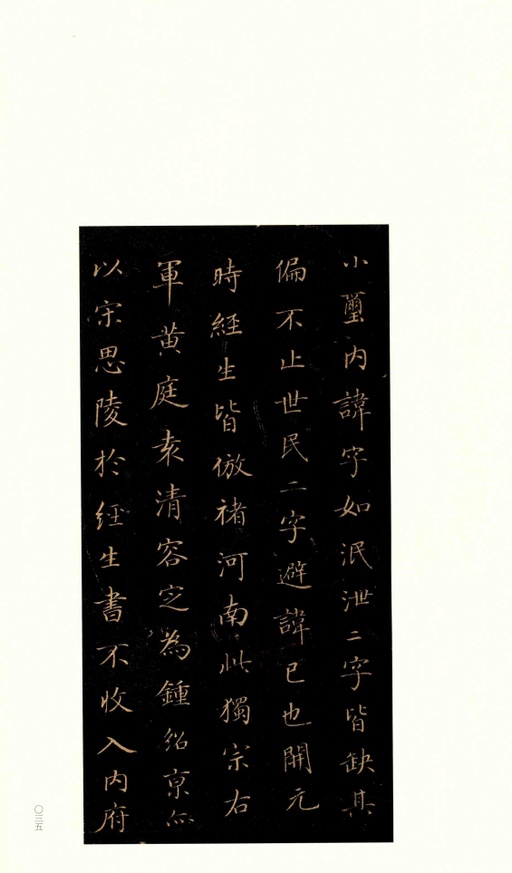 小璽内諱字如泯泄二字皆缺其
偏不止世民二字避諱已也開元
時經生皆倣褚河南此獨宗右
軍黄庭袁清容定為鍾紹京亦
以宋思陵於經生書不收入内府
〇三五